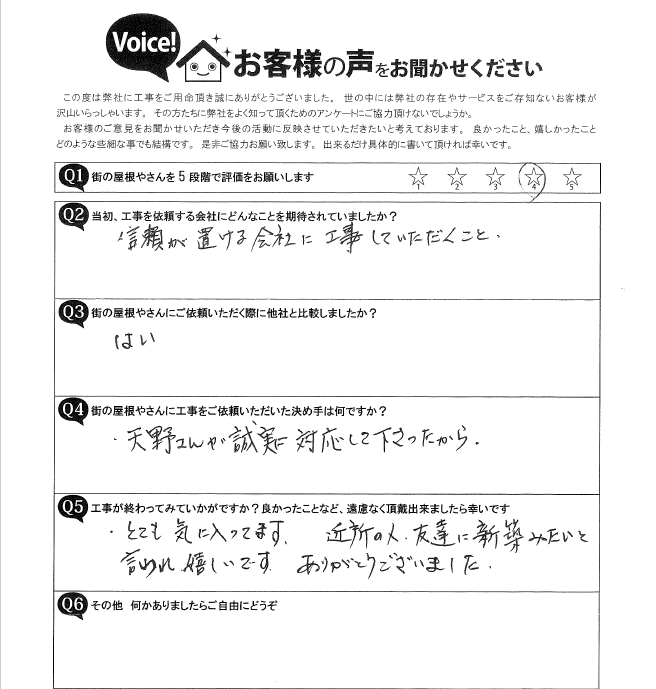 Voice!
お客様の声をお聞かせください
この度は弊社に工事をご用命頂き誠にありがとうございました。 世の中には弊社の存在やサービスをご存知ないお客様が
沢山いらっしゃいます。 その方たちに弊社をよく知って頂くためのアンケートにご協力頂けないでしょうか。
お客様のご意見をお聞かせいただき今後の活動に反映させていただきたいと考えております。 良かったこと、嬉しかったこと
どのような些細な事でも結構です。 是非ご協力お願い致します。 出来るだけ具体的に書いて頂ければ幸いです。
Q1 街の屋根やさんを5段階で評価をお願いします 1 2 3 4 5
Q2 当初、工事を依頼する会社にどんなことを期待されていましたか?
信頼が置ける会社に工事していただくこと.
Q3 街の屋根やさんにご依頼いただく際に他社と比較しましたか?
はい
Q4 街の屋根やさんに工事をご依頼いただいた決め手は何ですか?
・天野さんが誠実に対応して下さったから.
Q5 工事が終わってみていかがですか?良かったことなど、遠慮なく頂戴出来ましたら幸いです
・とても気に入ってます. 近所の人、友達に新築みたいと
言われ嬉しいです. ありがとうございました.
Q6 その他 何かありましたらご自由にどうぞ